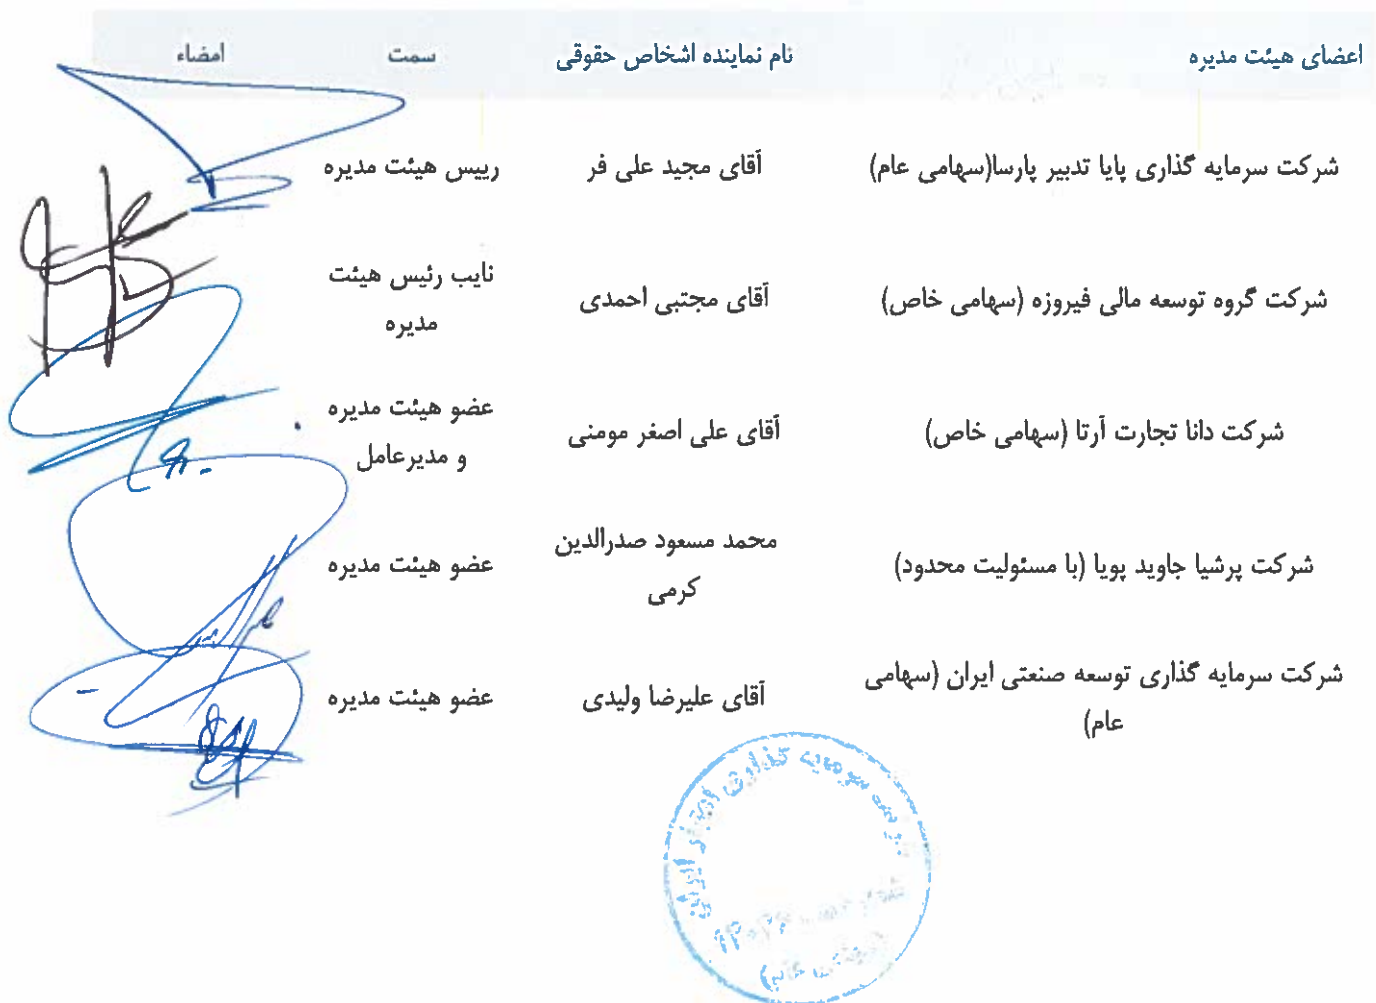 اعضای هیئت مدیره نام نماینده اشخاص حقوقی سمت امضاء
شرکت سرمایه گذاری پایا تدبیر پارسا(سهامی عام) آقای مجید علی فر رییس هیئت مدیره
شرکت گروه توسعه مالی فیروزه (سهامی خاص) آقای مجتبی احمدی نایب رئیس هیئت
مدیره
شرکت دانا تجارت آرتا (سهامی خاص) آقای علی اصغر مومنی عضو هیئت مدیره
و مدیرعامل
شرکت پرشیا جاوید پویا (با مسئولیت محدود) محمد مسعود صدرالدین
کرمی
عضو هیئت مدیره
شرکت سرمایه گذاری توسعه صنعتی ایران (سهامی
عام)
آقای علیرضا ولیدی عضو هیئت مدیره
گذاری اعتبار ایران